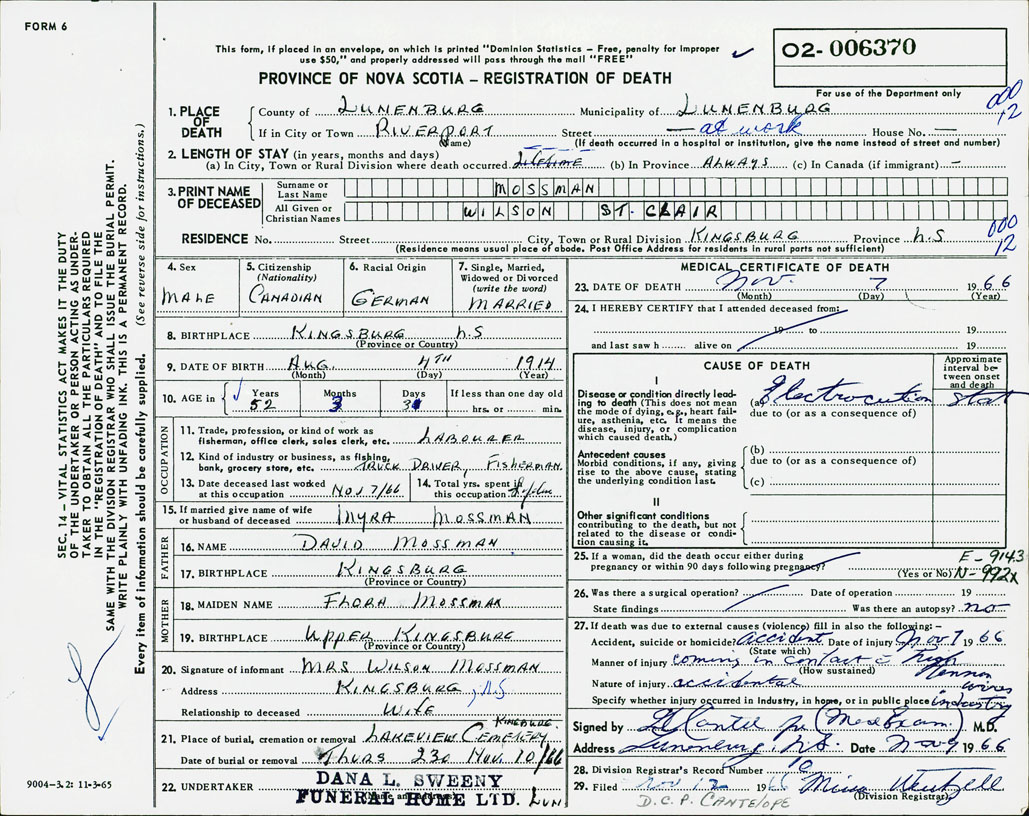 FORM 6
This form, if placed in an envelope, on which is printed "Dominion Statistics – Free, penalty for improper
use $50," and properly addressed will pass through the mail "FREE"
O2- 006370
For use of the Department only
PROVINCE OF NOVA SCOTIA – REGISTRATION OF DEATH
000
12
1. PLACE OF DEATH
County of LUNENBURG Municipality of LUNENBURG
If in City or Town RIVERPORT Street — at work House No. —
(Name) (If death occurred in a hospital or institution, give the name instead of street and number)
2. LENGTH OF STAY (in years, months and days)
(a) In City, Town or Rural Division where death occurred Lifetime (b) In Province ALWAYS (c) In Canada (if immigrant) —
3. PRINT NAME OF DECEASED
Surname or Last Name MOSSMAN
All Given or Christian Names WILSON ST. CLAIR
000
12
RESIDENCE No. Street City, Town or Rural Division KINGSBURG Province N.S
(Residence means usual place of abode. Post Office Address for residents in rural parts not sufficient)
SEC. 14 – VITAL STATISTICS ACT MAKES IT THE DUTY
OF THE UNDERTAKER OR PERSON ACTING AS UNDER-
TAKER TO OBTAIN ALL THE PARTICULARS REQUIRED
IN THE "REGISTRATION OF DEATH" AND TO FILE THE
SAME WITH THE DIVISION REGISTRAR WHO SHALL ISSUE THE BURIAL PERMIT.
WRITE PLAINLY WITH UNFADING INK. THIS IS A PERMANENT RECORD.
Every item of information should be carefully supplied. (See reverse side for instructions.)
4. Sex MALE
5. Citizenship (Nationality) CANADIAN
6. Racial Origin GERMAN
7. Single, Married, Widowed or Divorced (write the word) MARRIED
8. BIRTHPLACE KINGSBURG N.S
(Province or Country)
9. DATE OF BIRTH AUG. 4TH 1914
(Month) (Day) (Year)
10. AGE in Years 52 Months 3 Days 3 If less than one day old
hrs. or min.
OCCUPATION
11. Trade, profession, or kind of work as
fisherman, office clerk, sales clerk, etc. LABOURER
12. Kind of industry or business, as fishing,
bank, grocery store, etc. TRUCK DRIVER, FISHERMAN
13. Date deceased last worked
at this occupation NOV 7/66
14. Total yrs. spent in
this occupation
15. If married give name of wife
or husband of deceased MYRA MOSSMAN
FATHER
16. NAME DAVID MOSSMAN
17. BIRTHPLACE KINGSBURG
(Province or Country)
MOTHER
18. MAIDEN NAME FLORA MOSSMAN
19. BIRTHPLACE UPPER KINGSBURG
(Province or Country)
20. Signature of informant MRS WILSON MOSSMAN
Address KINGSBURG, N.S
Relationship to deceased WIFE
21. Place of burial, cremation or removal LAKEVIEW CEMETERY KINGSBURG
Date of burial or removal THURS 230 NOV. 10/66
22. UNDERTAKER DANA L. SWEENY
FUNERAL HOME LTD. LUN
(Name and address)
9004–3.2: 11-3-65
MEDICAL CERTIFICATE OF DEATH
23. DATE OF DEATH Nov. 7 1966
(Month) (Day) (Year)
24. I HEREBY CERTIFY that I attended deceased from:
19 to 19
and last saw h alive on 19
CAUSE OF DEATH
Approximate interval between onset and death
I
Disease or condition directly lead-
ing to death (This does not mean
the mode of dying, e.g., heart fail-
ure, asthenia, etc. It means the
disease, injury, or complication
which caused death.)
(a) Electrocution stat
due to (or as a consequence of)
Antecedent causes
Morbid conditions, if any, giving
rise to the above cause, stating
the underlying condition last.
(b)
due to (or as a consequence of)
(c)
II
Other significant conditions
contributing to the death, but not
related to the disease or condi-
tion causing it.
25. If a woman, did the death occur either during
pregnancy or within 90 days following pregnancy?
(Yes or No)
E – 9143
N – 992X
26. Was there a surgical operation? Date of operation 19
State findings Was there an autopsy? no
27. If death was due to external causes (violence) fill in also the following:–
Accident, suicide or homicide? accident Date of injury Nov 7 1966
(State which)
Manner of injury coming in contact c̄ high tension wires
(How sustained)
Nature of injury accidental
Specify whether injury occurred in industry, in home, or in public place industry
Signed by (Med Exam.) M.D.
Address Lunenburg, N.S. Date Nov 9 1966
28. Division Registrar's Record Number 10
29. Filed Nov 12 1966
(Division Registrar)
D.C.P. CANTELOPE